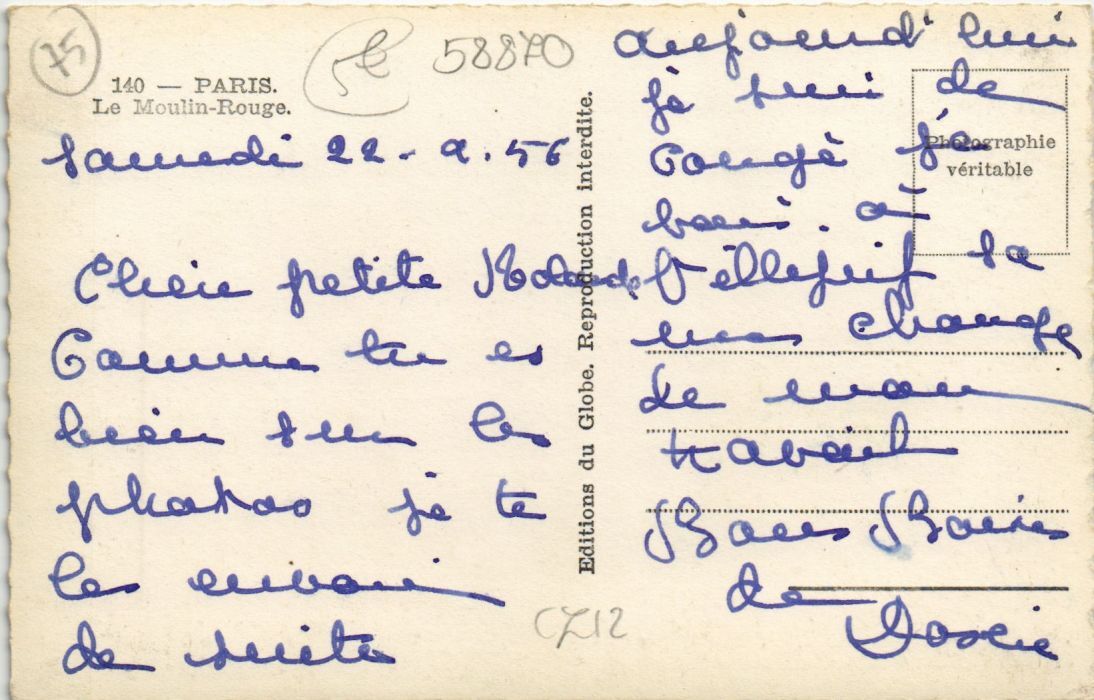 75
5e
58870
140 — PARIS.
Le Moulin-Rouge.
Samedi 22 - 9. 56
Cheie petite
Comme tu es
bien sur les
photos je te
les envoi
de suite
Editions du Globe. Reproduction interdite.
Photographie
véritable
aujourd'hui
je sui de
Congè je
vais. à
Villejuif sa
mas change
de mon
travail
Bons Baisés
de
CZ12